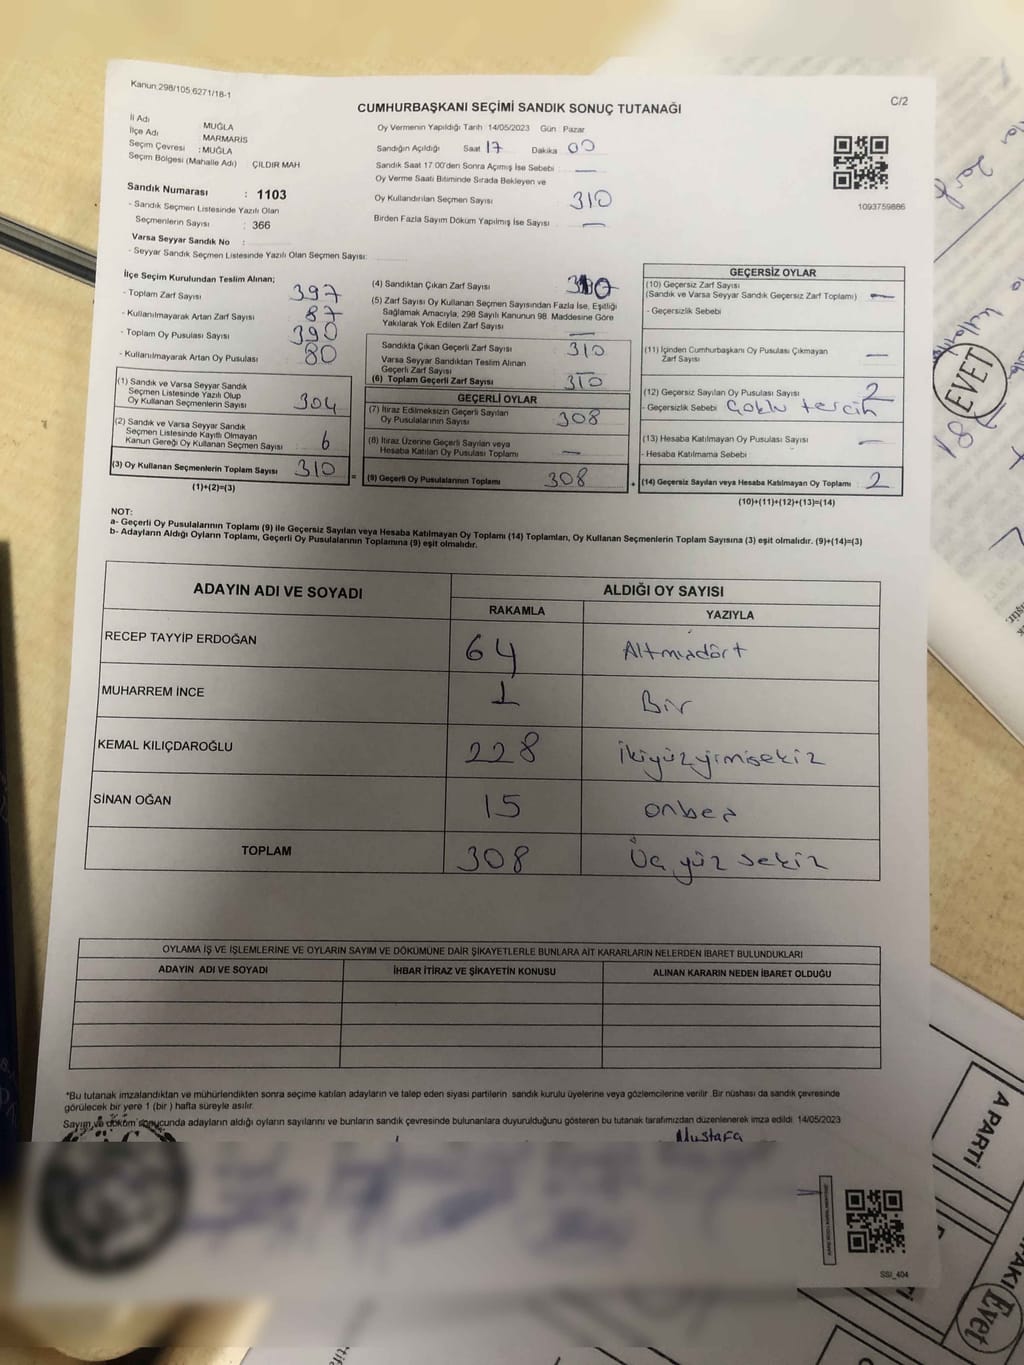 Kanun:298/105.6271/18-1
C/2
CUMHURBAŞKANI SEÇİMİ SANDIK SONUÇ TUTANAĞI
İl Adı MUĞLA
İlçe Adı MARMARİS
Seçim Çevresi : MUĞLA
Seçim Bölgesi (Mahalle Adı) ÇILDIR MAH
Sandık Numarası : 1103
- Sandık Seçmen Listesinde Yazılı Olan
Seçmenlerin Sayısı : 366
Varsa Seyyar Sandık No :
- Seyyar Sandık Seçmen Listesinde Yazılı Olan Seçmen Sayısı:
Oy Vermenin Yapıldığı Tarih :14/05/2023 Gün : Pazar
Sandığın Açıldığı Saat 17 Dakika 00
Sandık Saat 17.00'den Sonra Açımış İse Sebebi : —
Oy Verme Saati Bitiminde Sırada Bekleyen ve
Oy Kullandırılan Seçmen Sayısı 310
Birden Fazla Sayım Döküm Yapılmış İse Sayısı —
1093759886
İlçe Seçim Kurulundan Teslim Alınan;
- Toplam Zarf Sayısı 397
- Kullanılmayarak Artan Zarf Sayısı : 87
- Toplam Oy Pusulası Sayısı 390
- Kullanılmayarak Artan Oy Pusulası 80
(1) Sandık ve Varsa Seyyar Sandık
Seçmen Listesinde Yazılı Olup
Oy Kullanan Seçmenlerin Sayısı 304
(2) Sandık ve Varsa Seyyar Sandık
Seçmen Listesinde Kayıtlı Olmayan
Kanun Gereği Oy Kullanan Seçmen Sayısı 6
(3) Oy Kullanan Seçmenlerin Toplam Sayısı 310
(1)+(2)=(3)
(4) Sandıktan Çıkan Zarf Sayısı
(5) Zarf Sayısı Oy Kullanan Seçmen Sayısından Fazla İse, Eşitliği
Sağlamak Amacıyla; 298 Sayılı Kanunun 98. Maddesine Göre
Yakılarak Yok Edilen Zarf Sayısı —
Sandıkta Çıkan Geçerli Zarf Sayısı : 310
Varsa Seyyar Sandıktan Teslim Alınan
Geçerli Zarf Sayısı —
(6) Toplam Geçerli Zarf Sayısı 310
GEÇERLİ OYLAR
(7) İtiraz Edilmeksizin Geçerli Sayılan
Oy Pusulalarının Sayısı : 308
(8) İtiraz Üzerine Geçerli Sayılan veya
Hesaba Katılan Oy Pusulası Toplamı —
= (9) Geçerli Oy Pusulalarının Toplamı 308
GEÇERSİZ OYLAR
(10) Geçersiz Zarf Sayısı
(Sandık ve Varsa Seyyar Sandık Geçersiz Zarf Toplamı) : —
- Geçersizlik Sebebi
(11) İçinden Cumhurbaşkanı Oy Pusulası Çıkmayan
Zarf Sayısı —
(12) Geçersiz Sayılan Oy Pusulası Sayısı 2
- Geçersizlik Sebebi Çoklu tercih
(13) Hesaba Katılmayan Oy Pusulası Sayısı —
- Hesaba Katılmama Sebebi
+ (14) Geçersiz Sayılan veya Hesaba Katılmayan Oy Toplamı : 2
(10)+(11)+(12)+(13)=(14)
NOT:
a- Geçerli Oy Pusulalarının Toplamı (9) ile Geçersiz Sayılan veya Hesaba Katılmayan Oy Toplamı (14) Toplamları, Oy Kullanan Seçmenlerin Toplam Sayısına (3) eşit olmalıdır. (9)+(14)=(3)
b- Adayların Aldığı Oyların Toplamı, Geçerli Oy Pusulalarının Toplamına (9) eşit olmalıdır.
ADAYIN ADI VE SOYADI ALDIĞI OY SAYISI
RAKAMLA YAZIYLA
RECEP TAYYİP ERDOĞAN 64 Altmışdört
MUHARREM İNCE 1 Bir
KEMAL KILIÇDAROĞLU 228 ikiyüzyirmisekiz
SİNAN OĞAN 15 onbeş
TOPLAM 308 Üç yüz sekiz
OYLAMA İŞ VE İŞLEMLERİNE VE OYLARIN SAYIM VE DÖKÜMÜNE DAİR ŞİKAYETLERLE BUNLARA AİT KARARLARIN NELERDEN İBARET BULUNDUKLARI
ADAYIN ADI VE SOYADI İHBAR İTİRAZ VE ŞİKAYETİN KONUSU ALINAN KARARIN NEDEN İBARET OLDUĞU
*Bu tutanak imzalandıktan ve mühürlendikten sonra seçime katılan adayların ve talep eden siyasi partilerin sandık kurulu üyelerine veya gözlemcilerine verilir. Bir nüshası da sandık çevresinde
görülecek bir yere 1 (bir ) hafta süreyle asılır.
Sayım ve döküm sonucunda adayların aldığı oyların sayılarını ve bunların sandık çevresinde bulunanlara duyurulduğunu gösteren bu tutanak tarafımızdan düzenlenerek imza edildi. 14/05/2023
Mustafa
SSİ_404
EVET
A PARTİ
Evet